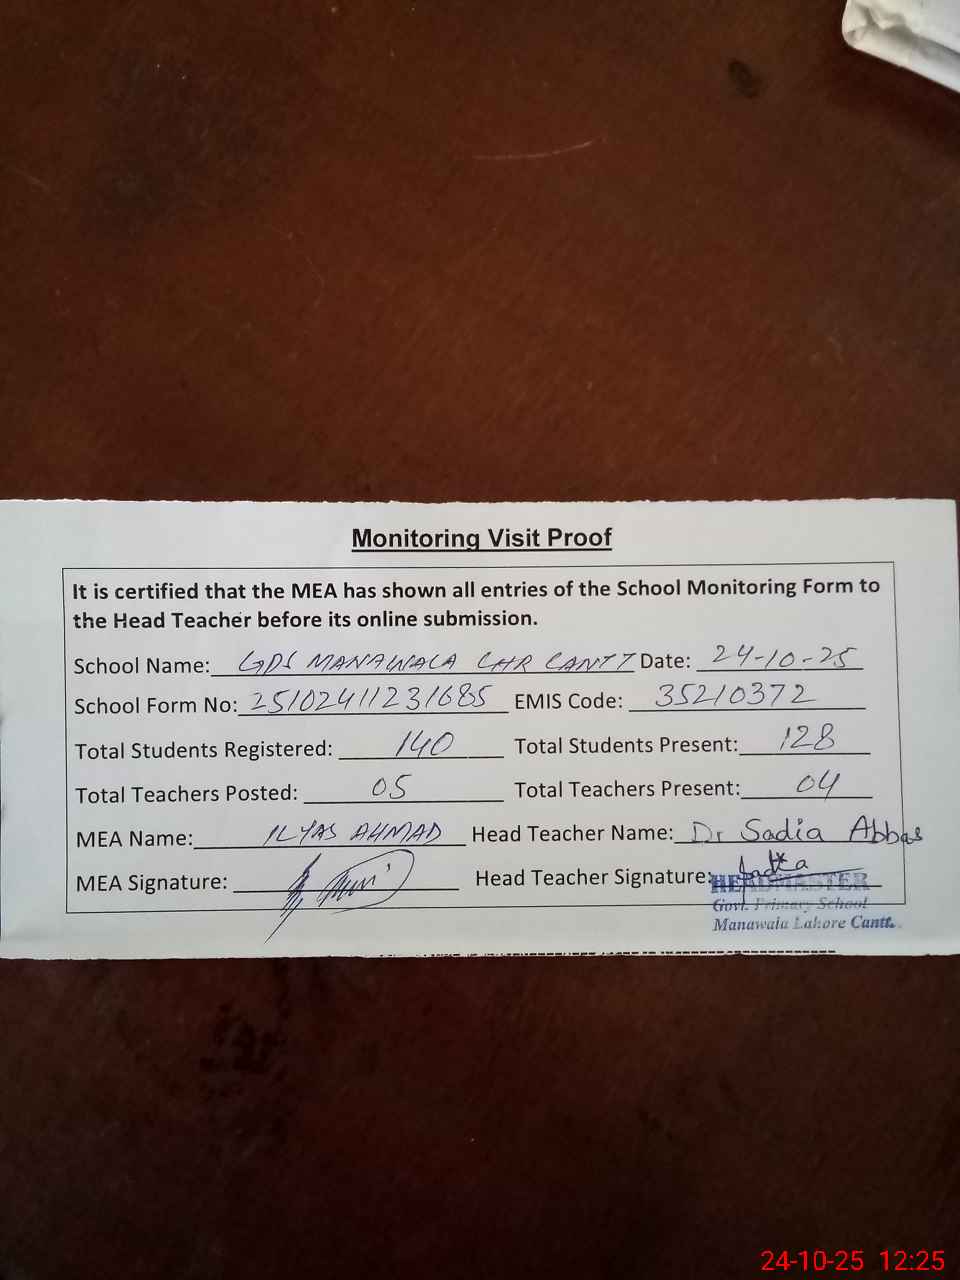 Monitoring Visit Proof
It is certified that the MEA has shown all entries of the School Monitoring Form to
the Head Teacher before its online submission.
School Name: GPS MANAWALA LHR CANTT Date: 24-10-25
School Form No: 25102411231685 EMIS Code: 35210372
Total Students Registered: 140 Total Students Present: 128
Total Teachers Posted: 05 Total Teachers Present: 04
MEA Name: ILYAS AHMAD Head Teacher Name: Dr Sadia Abbas
MEA Signature: Head Teacher Signature:
HEADMASTER
Govt. Primary School
Manawala Lahore Cantt.
24-10-25 12:25